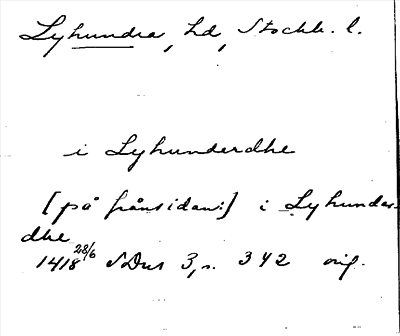 Lyhundra, hd, Stockh. l.
i Lyhunderdhe
[på frånsidan:] i Lyhundar-
dhe
1418 28/6 SDns 3, s. 342 orig.